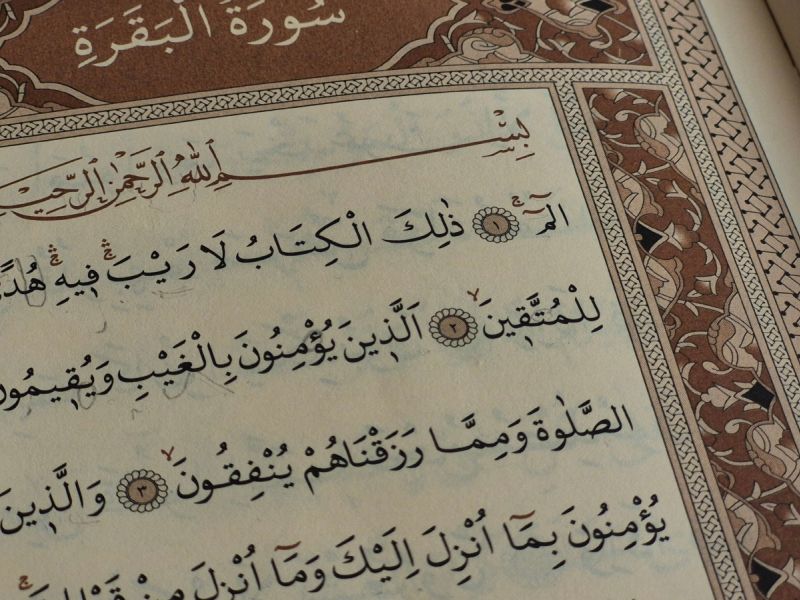 سُورَةُ الْبَقَرَةِ
بِسْمِ اللّٰهِ الرَّحْمٰنِ الرَّحٖيمِ
الٓمٓ ﴿١﴾ ذٰلِكَ الْكِتَابُ لَا رَيْبَ فٖيهِ هُدًى
لِلْمُتَّقٖينَ ﴿٢﴾ اَلَّذٖينَ يُؤْمِنُونَ بِالْغَيْبِ وَيُقٖيمُونَ
الصَّلٰوةَ وَمِمَّا رَزَقْنَاهُمْ يُنْفِقُونَ ﴿٣﴾ وَالَّذٖينَ
يُؤْمِنُونَ بِمَٓا اُنْزِلَ اِلَيْكَ وَمَٓا اُنْزِلَ مِنْ